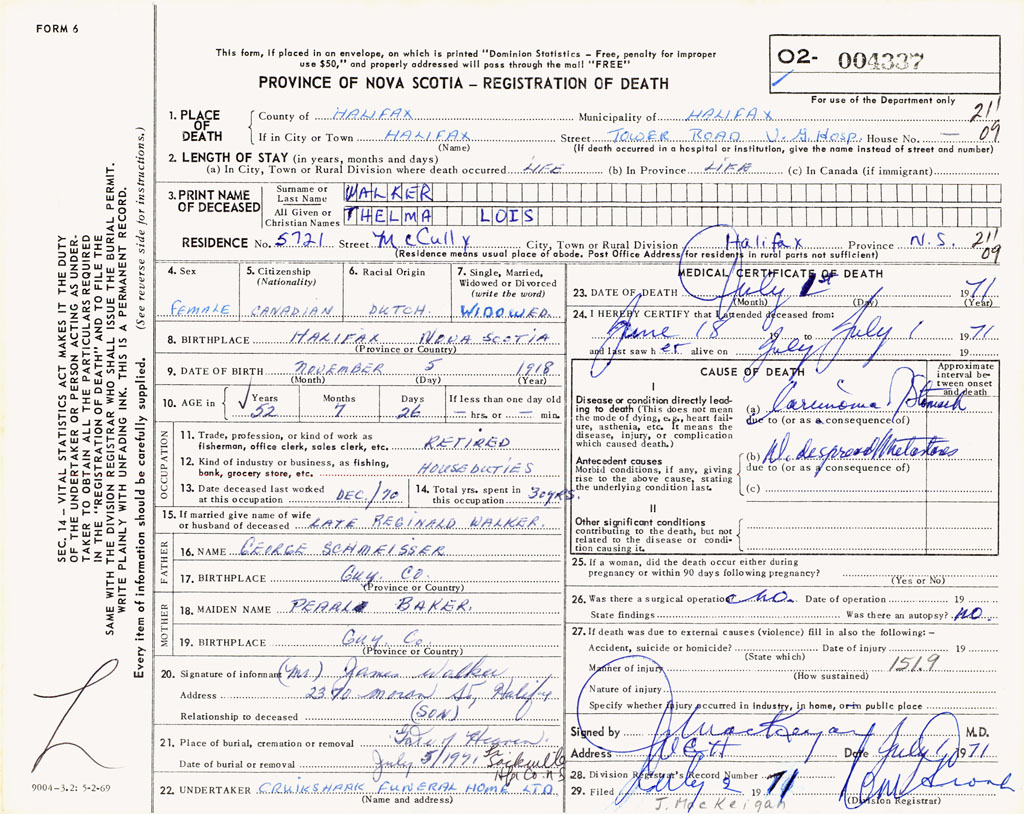 FORM 6
This form, if placed in an envelope, on which is printed "Dominion Statistics – Free, penalty for improper
use $50," and properly addressed will pass through the mail "FREE"
O2- 004337
PROVINCE OF NOVA SCOTIA – REGISTRATION OF DEATH
For use of the Department only
1. PLACE OF DEATH
County of HALIFAX Municipality of HALIFAX 211
If in City or Town HALIFAX Street TOWER ROAD V.G. HOSP. House No. — 09
(Name) (If death occurred in a hospital or institution, give the name instead of street and number)
2. LENGTH OF STAY (in years, months and days)
(a) In City, Town or Rural Division where death occurred LIFE (b) In Province LIFE (c) In Canada (if immigrant)
3. PRINT NAME OF DECEASED
Surname or Last Name WALKER
All Given or Christian Names THELMA LOIS
RESIDENCE No. 5721 Street McCully City, Town or Rural Division Halifax Province N.S. 211
(Residence means usual place of abode. Post Office Address for residents in rural parts not sufficient) 09
4. Sex FEMALE
5. Citizenship (Nationality) CANADIAN
6. Racial Origin DUTCH.
7. Single, Married, Widowed or Divorced (write the word) WIDOWED.
8. BIRTHPLACE HALIFAX NOVA SCOTIA
(Province or Country)
9. DATE OF BIRTH NOVEMBER 5 1918
(Month) (Day) (Year)
10. AGE in Years Months Days If less than one day old
52 7 26 — hrs. or — min.
OCCUPATION
11. Trade, profession, or kind of work as
fisherman, office clerk, sales clerk, etc. RETIRED
12. Kind of industry or business, as fishing,
bank, grocery store, etc. HOUSEDUTIES
13. Date deceased last worked
at this occupation DEC./70
14. Total yrs. spent in
this occupation 30 YRS.
15. If married give name of wife
or husband of deceased LATE REGINALD WALKER.
FATHER
16. NAME GEORGE SCHMEISSER
17. BIRTHPLACE GUY. CO.
(Province or Country)
MOTHER
18. MAIDEN NAME PEARL BAKER.
19. BIRTHPLACE GUY Co.
(Province or Country)
20. Signature of informant (Mr.) James Walker
Address 2370 Moran St, Halifax
Relationship to deceased (SON)
21. Place of burial, cremation or removal Gate of Heaven
Date of burial or removal July 3/1971 Sackville
Hfx Co. N.S.
22. UNDERTAKER CRUIKSHANK FUNERAL HOME LTD.
(Name and address)
MEDICAL CERTIFICATE OF DEATH
23. DATE OF DEATH July 1st 1971
(Month) (Day) (Year)
24. I HEREBY CERTIFY that I attended deceased from:
June 18 19 to July 1 1971
and last saw her alive on July 19
CAUSE OF DEATH
Approximate interval between onset and death
I
Disease or condition directly leading to death (This does not mean
the mode of dying, e.g., heart failure, asthenia, etc. It means the
disease, injury, or complication
which caused death.)
(a) Carcinoma Stomach
due to (or as a consequence of)
Antecedent causes
Morbid conditions, if any, giving
rise to the above cause, stating
the underlying condition last.
(b) Widespread Metastases
due to (or as a consequence of)
(c)
II
Other significant conditions
contributing to the death, but not
related to the disease or condition causing it.
25. If a woman, did the death occur either during
pregnancy or within 90 days following pregnancy?
(Yes or No)
26. Was there a surgical operation? No. Date of operation 19
State findings Was there an autopsy? No.
27. If death was due to external causes (violence) fill in also the following: –
Accident, suicide or homicide? Date of injury 19
(State which)
Manner of injury 151.9
(How sustained)
Nature of injury
Specify whether injury occurred in industry, in home, or in public place
Signed by J MacKeigan M.D.
Address Date July 1 1971
28. Division Registrar's Record Number
29. Filed July 2 1971
(Division Registrar)
J. MacKeigan
SEC. 14 – VITAL STATISTICS ACT MAKES IT THE DUTY
OF THE UNDERTAKER OR PERSON ACTING AS UNDER-
TAKER TO OBTAIN ALL THE PARTICULARS REQUIRED
IN THE "REGISTRATION OF DEATH" AND TO FILE THE
SAME WITH THE DIVISION REGISTRAR WHO SHALL ISSUE THE BURIAL PERMIT.
WRITE PLAINLY WITH UNFADING INK. THIS IS A PERMANENT RECORD.
Every item of information should be carefully supplied. (See reverse side for instructions.)
9004-3.2: 5-2-69